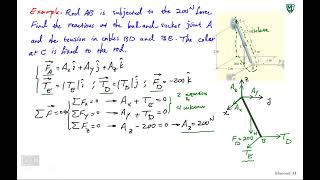 Example: Rod AB is subjected to the 200N force.
Find the reactions at the ball and socket joint A
and the tension in cables BD and BE. The collar
at C is fixed to the rod.
F_A = A_x i + A_y j + A_z k
T_E = |T_E| i ; T_D = |T_D| j ; F_D = -200 k
ΣF=0
ΣF_x = 0 → A_x + T_E = 0
ΣF_y = 0 → A_y + T_D = 0
ΣF_z = 0 → A_z - 200 = 0 → A_z = 200 N
2 equation
4 unknown
z
A
y
x
F_D = 200
B
T_D
T_E